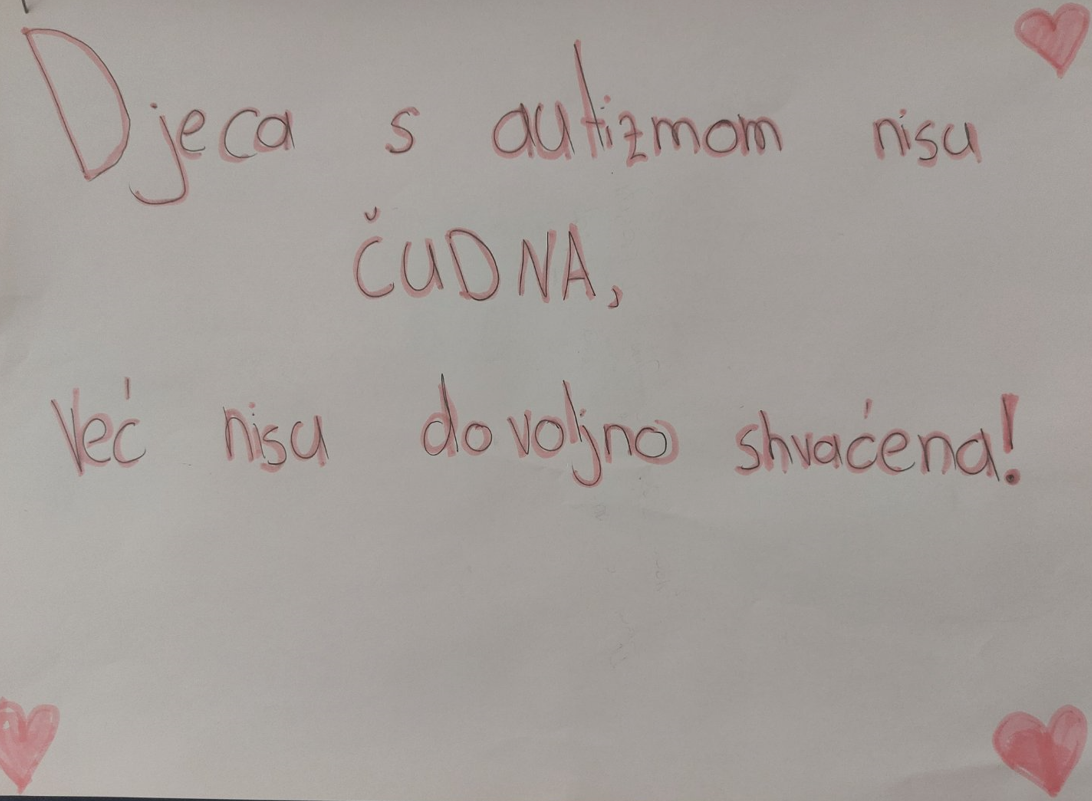 Djeca s autizmom nisu
ČUDNA,
Već nisu dovoljno shvaćena!